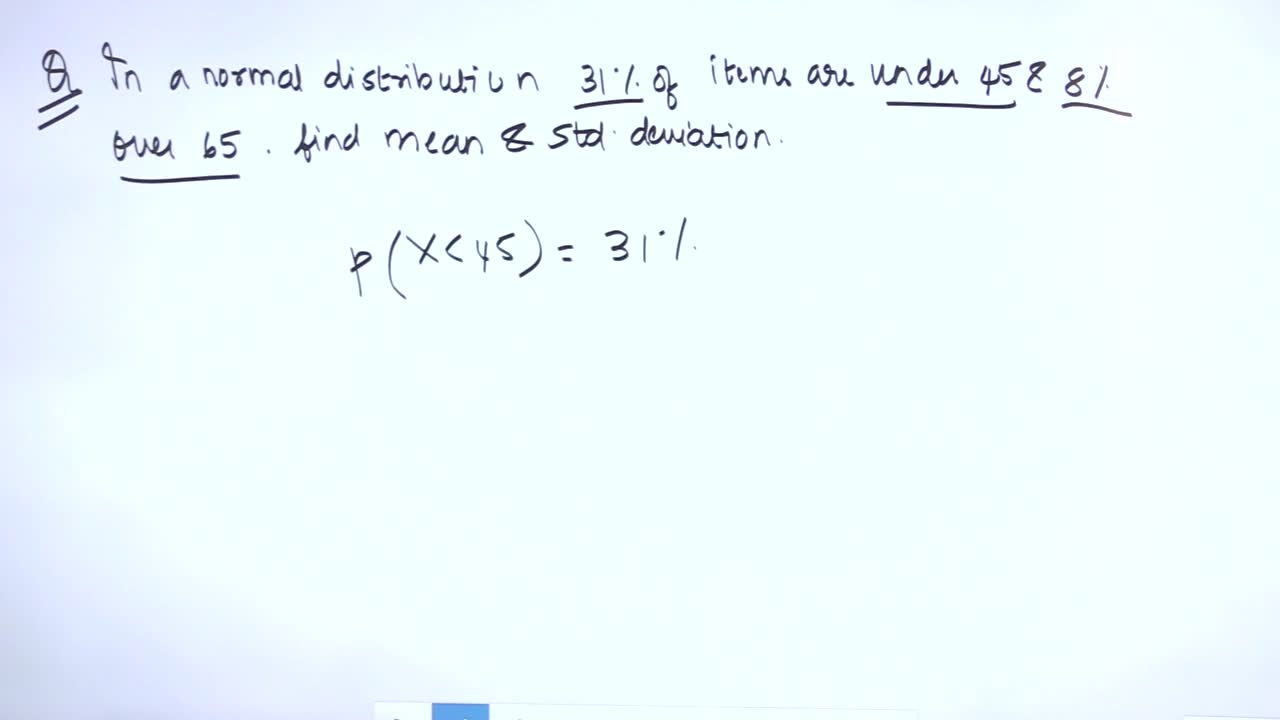 Q In a normal distribution 31% of items are under 45 & 8%
over 65. find mean & std. deviation.
P(X<45) = 31%